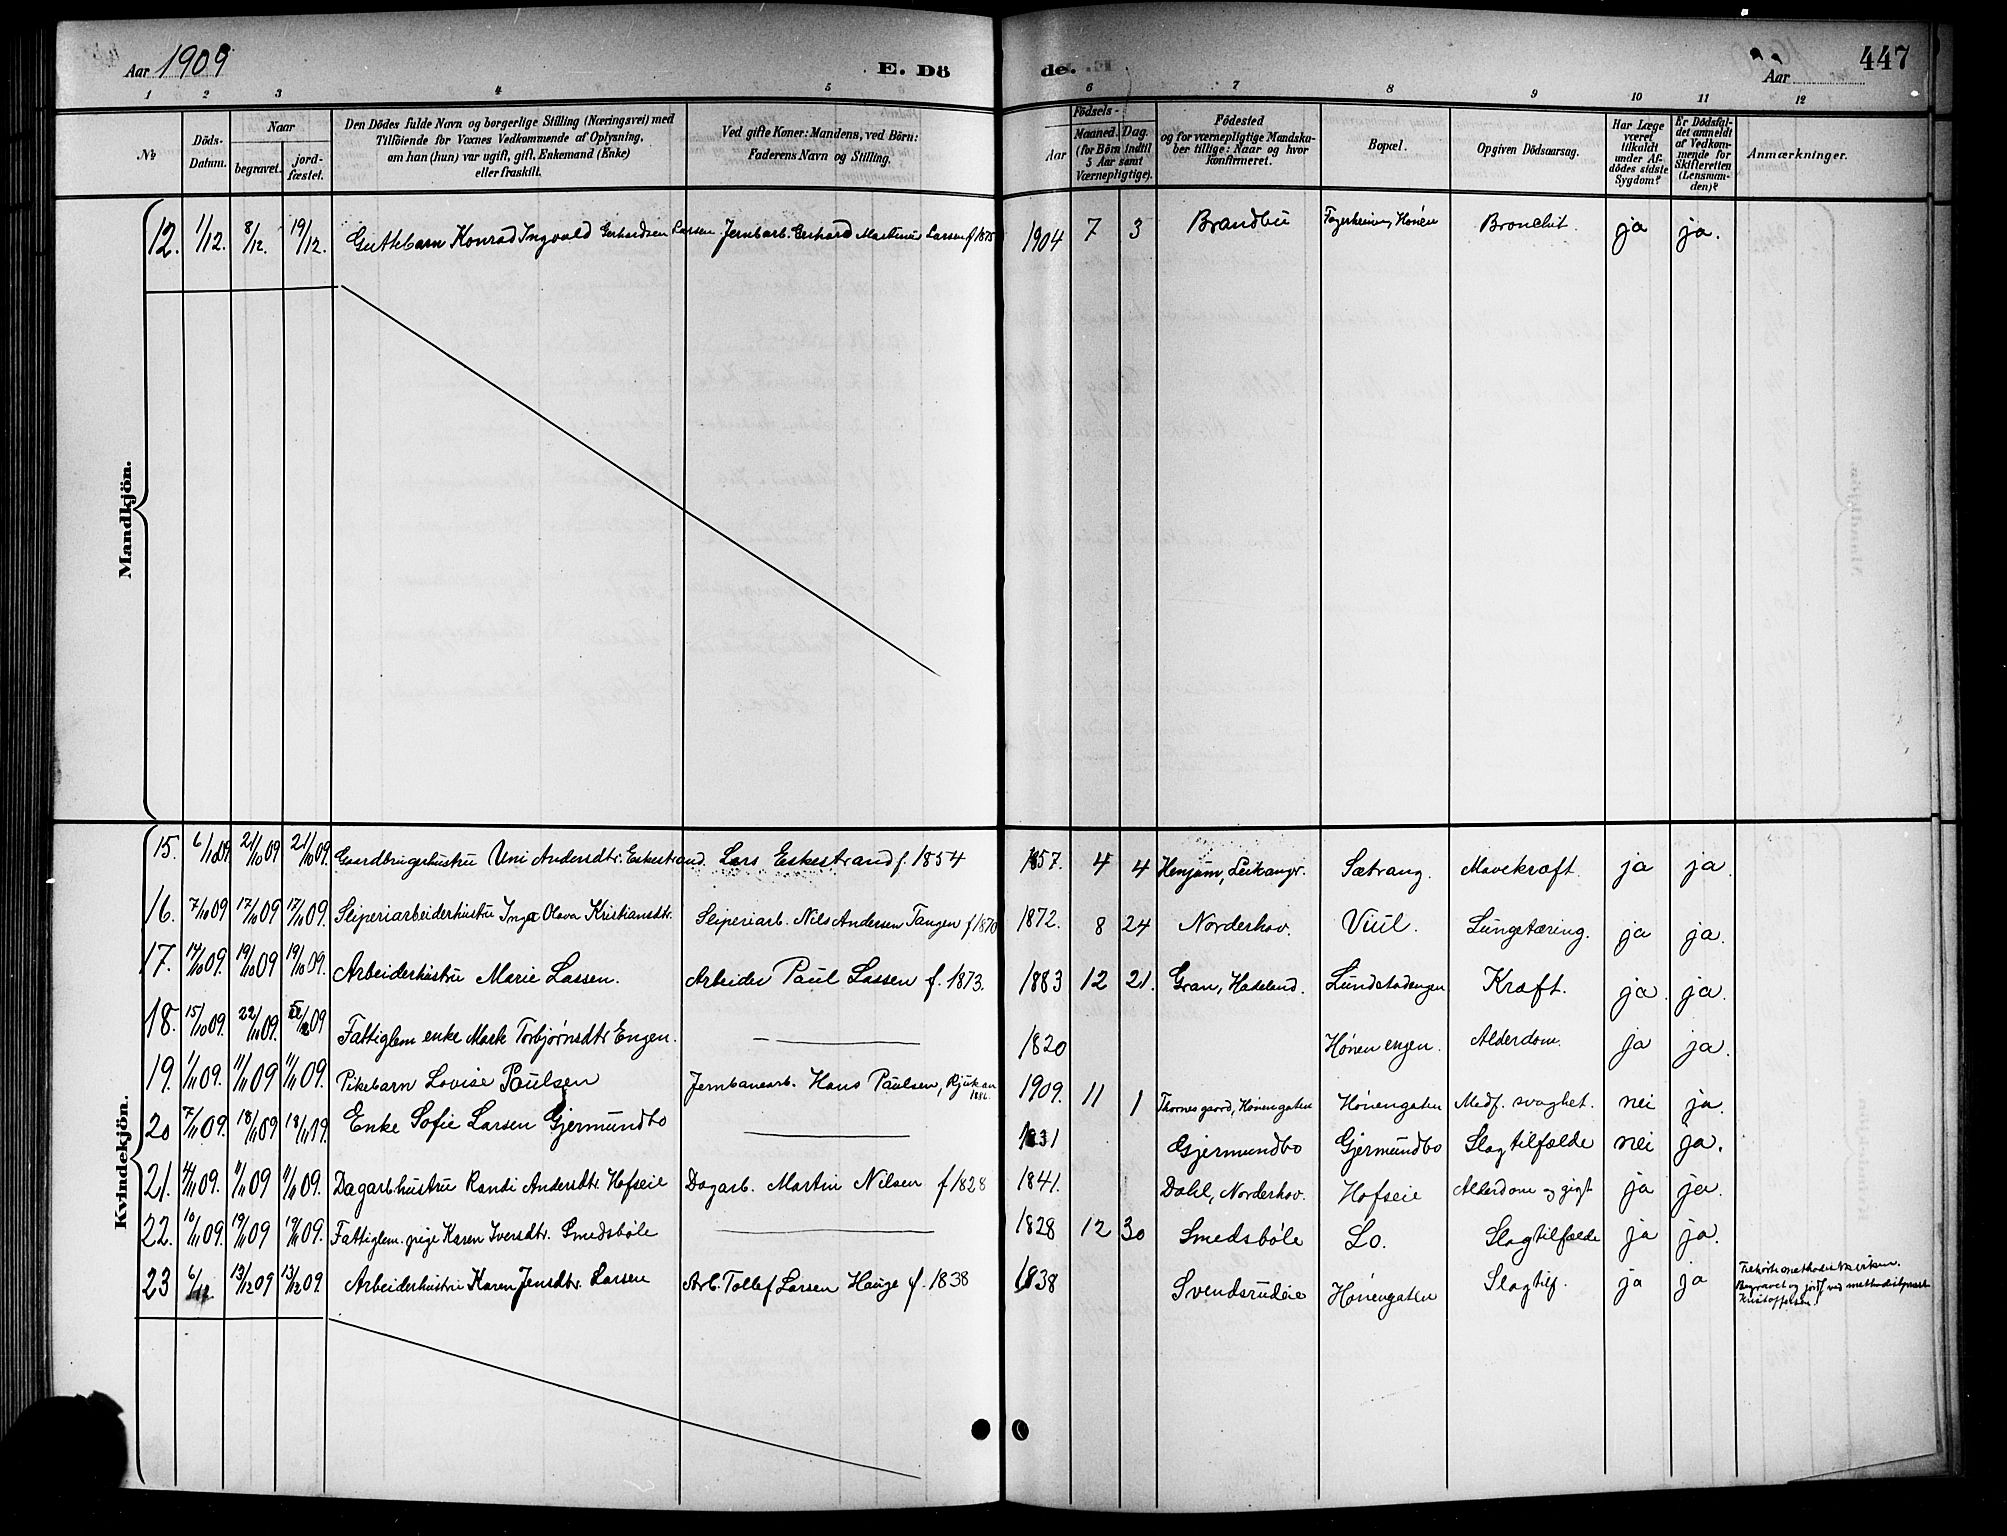 Aar 1909
E. Dö
de.
Aar
447
1 2 3 4 5 6 7 8 9 10 11 12
No.
Döds-Datum.
Naar
begravet.
jord-fæstet.
Den Dödes fulde Navn og borgerlige Stilling (Næringsvei) med
Tilföiende for Voxnes Vedkommende af Oplysning,
om han (hun) var ugift, gift, Enkemand (Enke)
eller fraskilt.
Ved gifte Koner: Mandens, ved Börn:
Faderens Navn og Stilling.
Födsels-
Aar
Maaned. Dag.
(for Börn indtil
5 Aar samt
Værnepligtige).
Födested
og for værnepligtige Mandska-
ber tillige: Naar og hvor
konfirmeret.
Bopæl.
Opgiven Dödsaarsag.
Har Læge
været
tilkaldt
under Af-
dödes sidste
Sygdom?
Er Dödsfal-
det anmeldt
af Vedkom-
mende for
Skifteretten
(Lensman-
den)?
Anmærkninger.
Mandkjön.
12. 1/12. 8/12. 19/12. Guttebarn Konrad Ingvald Gerhardsen Larsen. Jernbarb. Gerhard Martinus Larsen f 1875 1904 7 3 Brandbu Fagerheim, Hønen Bronchit. ja ja.
Kvindekjön.
15. 6/10 09 21/10 09 21/10 09. Gaardbrugerhustru Uni Andersdtr. Eskestrand. Lars Eskestrand f. 1854 1857. 4 4 Henjum, Leikanger. Sætrang. Mavekræft. ja ja.
16. 7/10 09 17/10 09 17/10 09. Sliperiarbeiderhustru Inga Olava Kristiansdtr. Sliperiarb. Nils Andersen Tangen f 1870 1872. 8 24 Norderhov. Viul. Lungetæring. ja ja.
17. 14/10 09. 19/10 09 19/10 09. Arbeiderhustru Marie Lassen. Arbeider Paul Lassen f. 1873. 1883 12 21. Gran, Hadeland. Lundstadengen Kræft. ja. ja.
18. 15/10 09. 22/11 09. 09 Fattiglem enke Marte Torbjørnsdtr Engen. 1820 Hønen engen. Alderdom. ja ja.
19. 1/11 09. 11/11 09 11/11 09. Pikebarn Lovise Paulsen Jernbanearb. Hans Paulsen, Rjukan 1909. 11 1 Thornesgaard, Hønengaten Hønengaten Medf. svaghet. nei ja.
20 7/11 09. 18/11 09 18/11 09. Enke Sofie Larsen Gjermundbo 1831 Gjermundbo Gjermundbo Slagtilfælde nei ja.
21. 4/11 09. 11/11 09 11/11 09. Dagarb.hustru Randi Andersdtr. Hofseie Dagarb. Martin Nilsen f 1828 1841. Dahl, Norderhov. Hofseie Alderdom og gigt ja ja.
22. 10/11 09. 19/11 09 19/11 09. Fattiglem. pige Karen Iversdtr. Smedsbøle 1828 12 30 Smedsbøle Lo. Slagtilfælde ja ja.
23 6/12 13/12 09 13/12 09. Arbeiderhustru Karen Jensdtr. Larsen Arb. Tollef Larsen Hauge f. 1838 1838 Svendsrudeie Hønengaten Slagtilf. ja ja Tilhørte methodistkirken.
Begravet og jordf. ved methodistpræst
Kristoffersen.